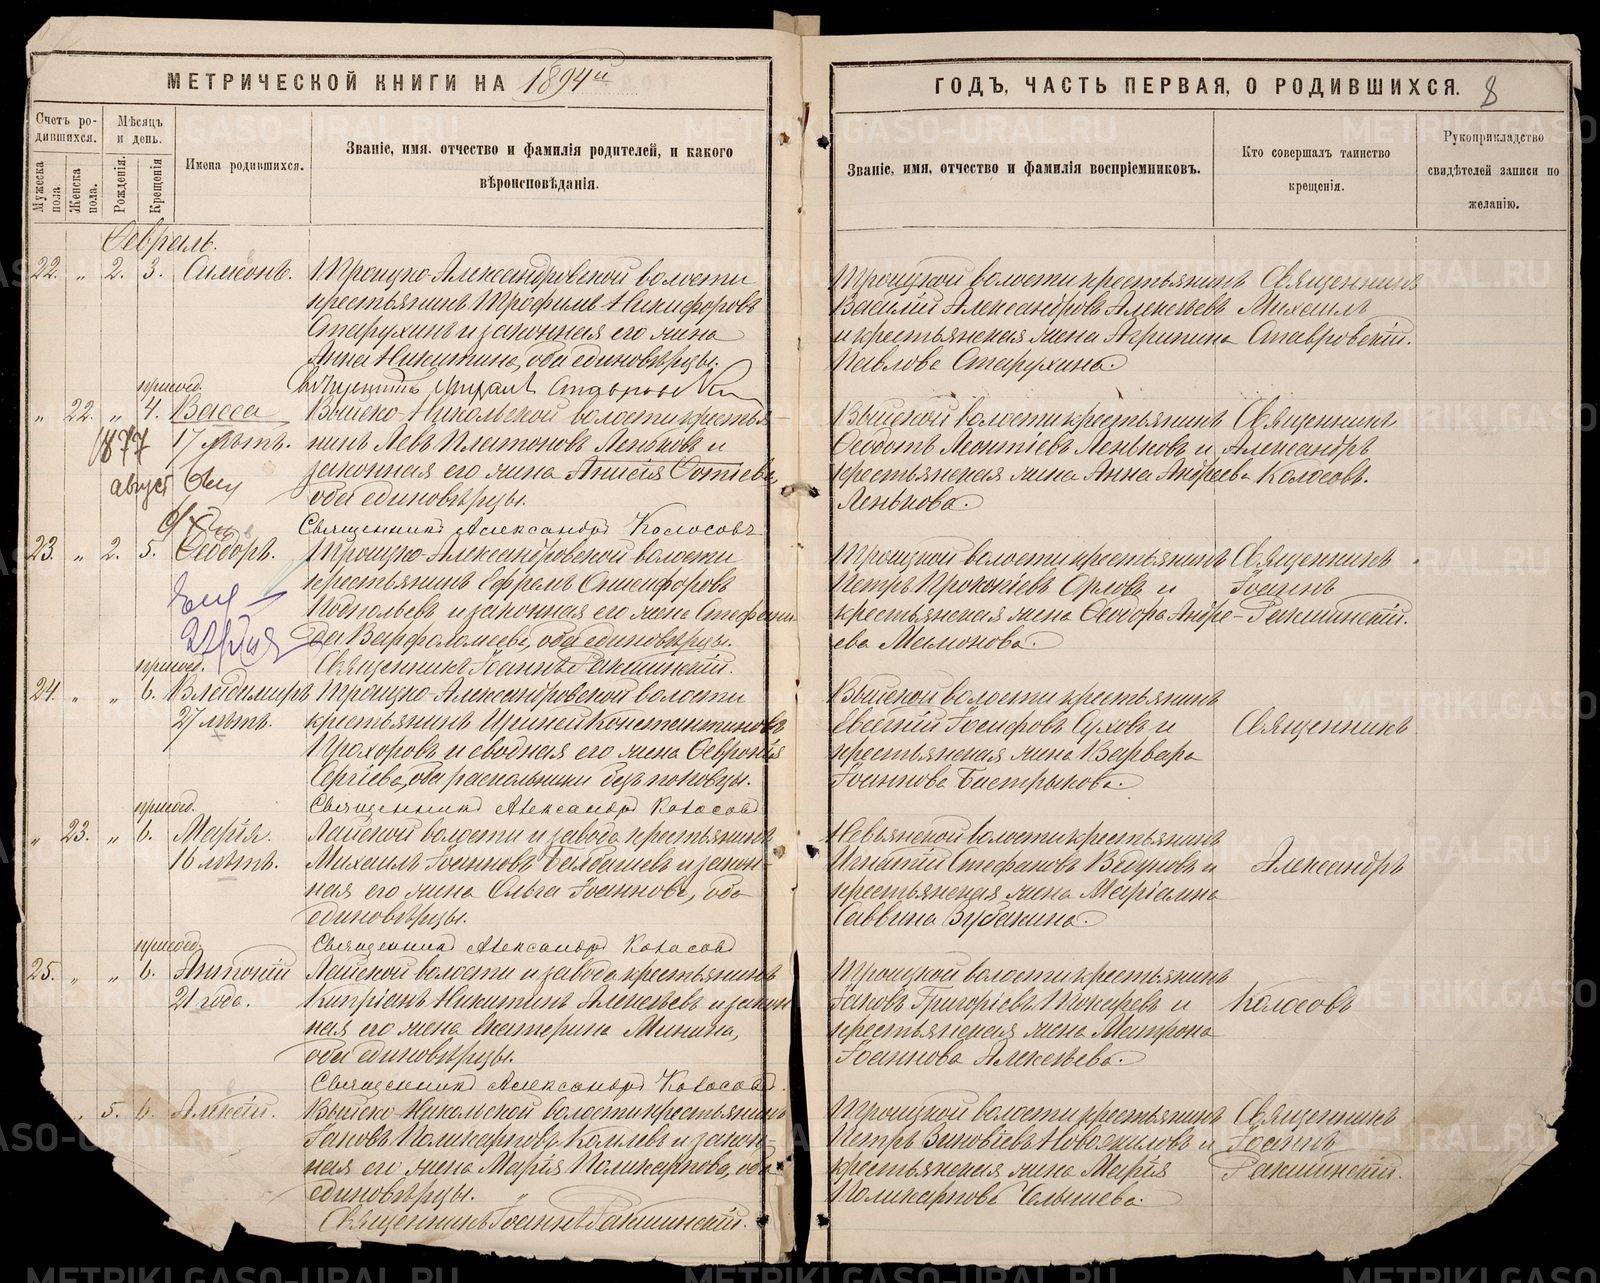 МЕТРИЧЕСКОЙ КНИГИ НА 1894й
Счетъ родившихся.
Мѣсяцъ и день.
Имена родившихся.
Званіе, имя, отчество и фамилія родителей, и какого
вѣроисповѣданія.
Мужеска пола
Женска пола.
Рожденія.
Крещенія
Февраль.
22. „ 2. 3. Симеонъ. Троицко-Александровской волости
крестьянинъ Трофимъ Никифоровъ
Старухинъ и законная его жена
Анна Никитина, оба единовѣрцы.
Священникъ Михаилъ
присоед.
„ 22. „ 4. Васса Выйско-Никольской волости крестья-
17 лѣтъ. нинъ Левъ Платоновъ Леньковъ и
1877
законная его жена Анисія Фотіева,
август
оба единовѣрцы.
Священникъ Александръ Колосовъ
23. „ 2. 5. Ѳеодоръ. Троицко-Александровской волости
крестьянинъ Ефремъ
и законная его жена
Варфоломеева, оба единовѣрцы.
Священникъ Іоаннъ
присоед.
24. „ „ 6. Владимиръ Троицко-Александровской волости
27 лѣтъ. крестьянинъ Константиновъ
Прохоровъ и сводная его жена Февронія
Сергіева, оба раскольники безпоповцы.
Священникъ Александръ Колосовъ
присоед.
„ 23. „ 6. Марія. Лайской волости и завода крестьянинъ
16 лѣтъ. Михаилъ Іоанновъ и закон-
ная его жена Ольга Іоаннова, оба
единовѣрцы.
Священникъ Александръ Колосовъ
присоед.
25. „ „ 6. Антоній Лайской волости и завода крестьянинъ
21 года. Кипріанъ Никитинъ Алексѣевъ и закон-
ная его жена Екатерина Минина,
оба единовѣрцы.
Священникъ Александръ Колосовъ
„ 5. 6. Выйско-Никольской волости крестьянинъ
Іаковъ Поликарповъ и закон-
ная его жена Марія Поликарпова, оба
единовѣрцы.
Священникъ Іоаннъ
ГОДЪ, ЧАСТЬ ПЕРВАЯ, О РОДИВШИХСЯ. 8
Званіе, имя, отчество и фамилія воспріемниковъ.
Кто совершалъ таинство
крещенія.
Рукоприкладство
свидѣтелей записи по
желанію.
Троицкой волости крестьянинъ Священникъ
Василій Александровъ Алексѣевъ Михаилъ
и крестьянская жена Агрипина Ставровскій.
Павлова Старухина.
Выйской волости крестьянинъ Священникъ
Ѳедотъ Леонтіевъ Леньковъ и Александръ
крестьянская жена Анна Андреева Колосовъ.
Ленькова.
Троицкой волости крестьянинъ Священникъ
Петръ Прокопіевъ Орловъ и Іоаннъ
крестьянская жена Ѳеодора Андре-
ева Мамонова.
Выйской волости крестьянинъ
Евсевій Іосифовъ Суховъ и Священникъ
крестьянская жена Варвара
Іоаннова Бастрыкова.
Невьянской волости крестьянинъ
Игнатій Стефановъ и Александръ
крестьянская жена Маріамна
Саввина
Троицкой волости крестьянинъ
Іаковъ Григоріевъ и Колосовъ
крестьянская жена Матрона
Іоаннова Алексѣева.
Троицкой волости крестьянинъ Священникъ
Петръ Зиновіевъ и Іоаннъ
крестьянская жена Марія
Поликарпова
METRIKI.GASO-URAL.RU